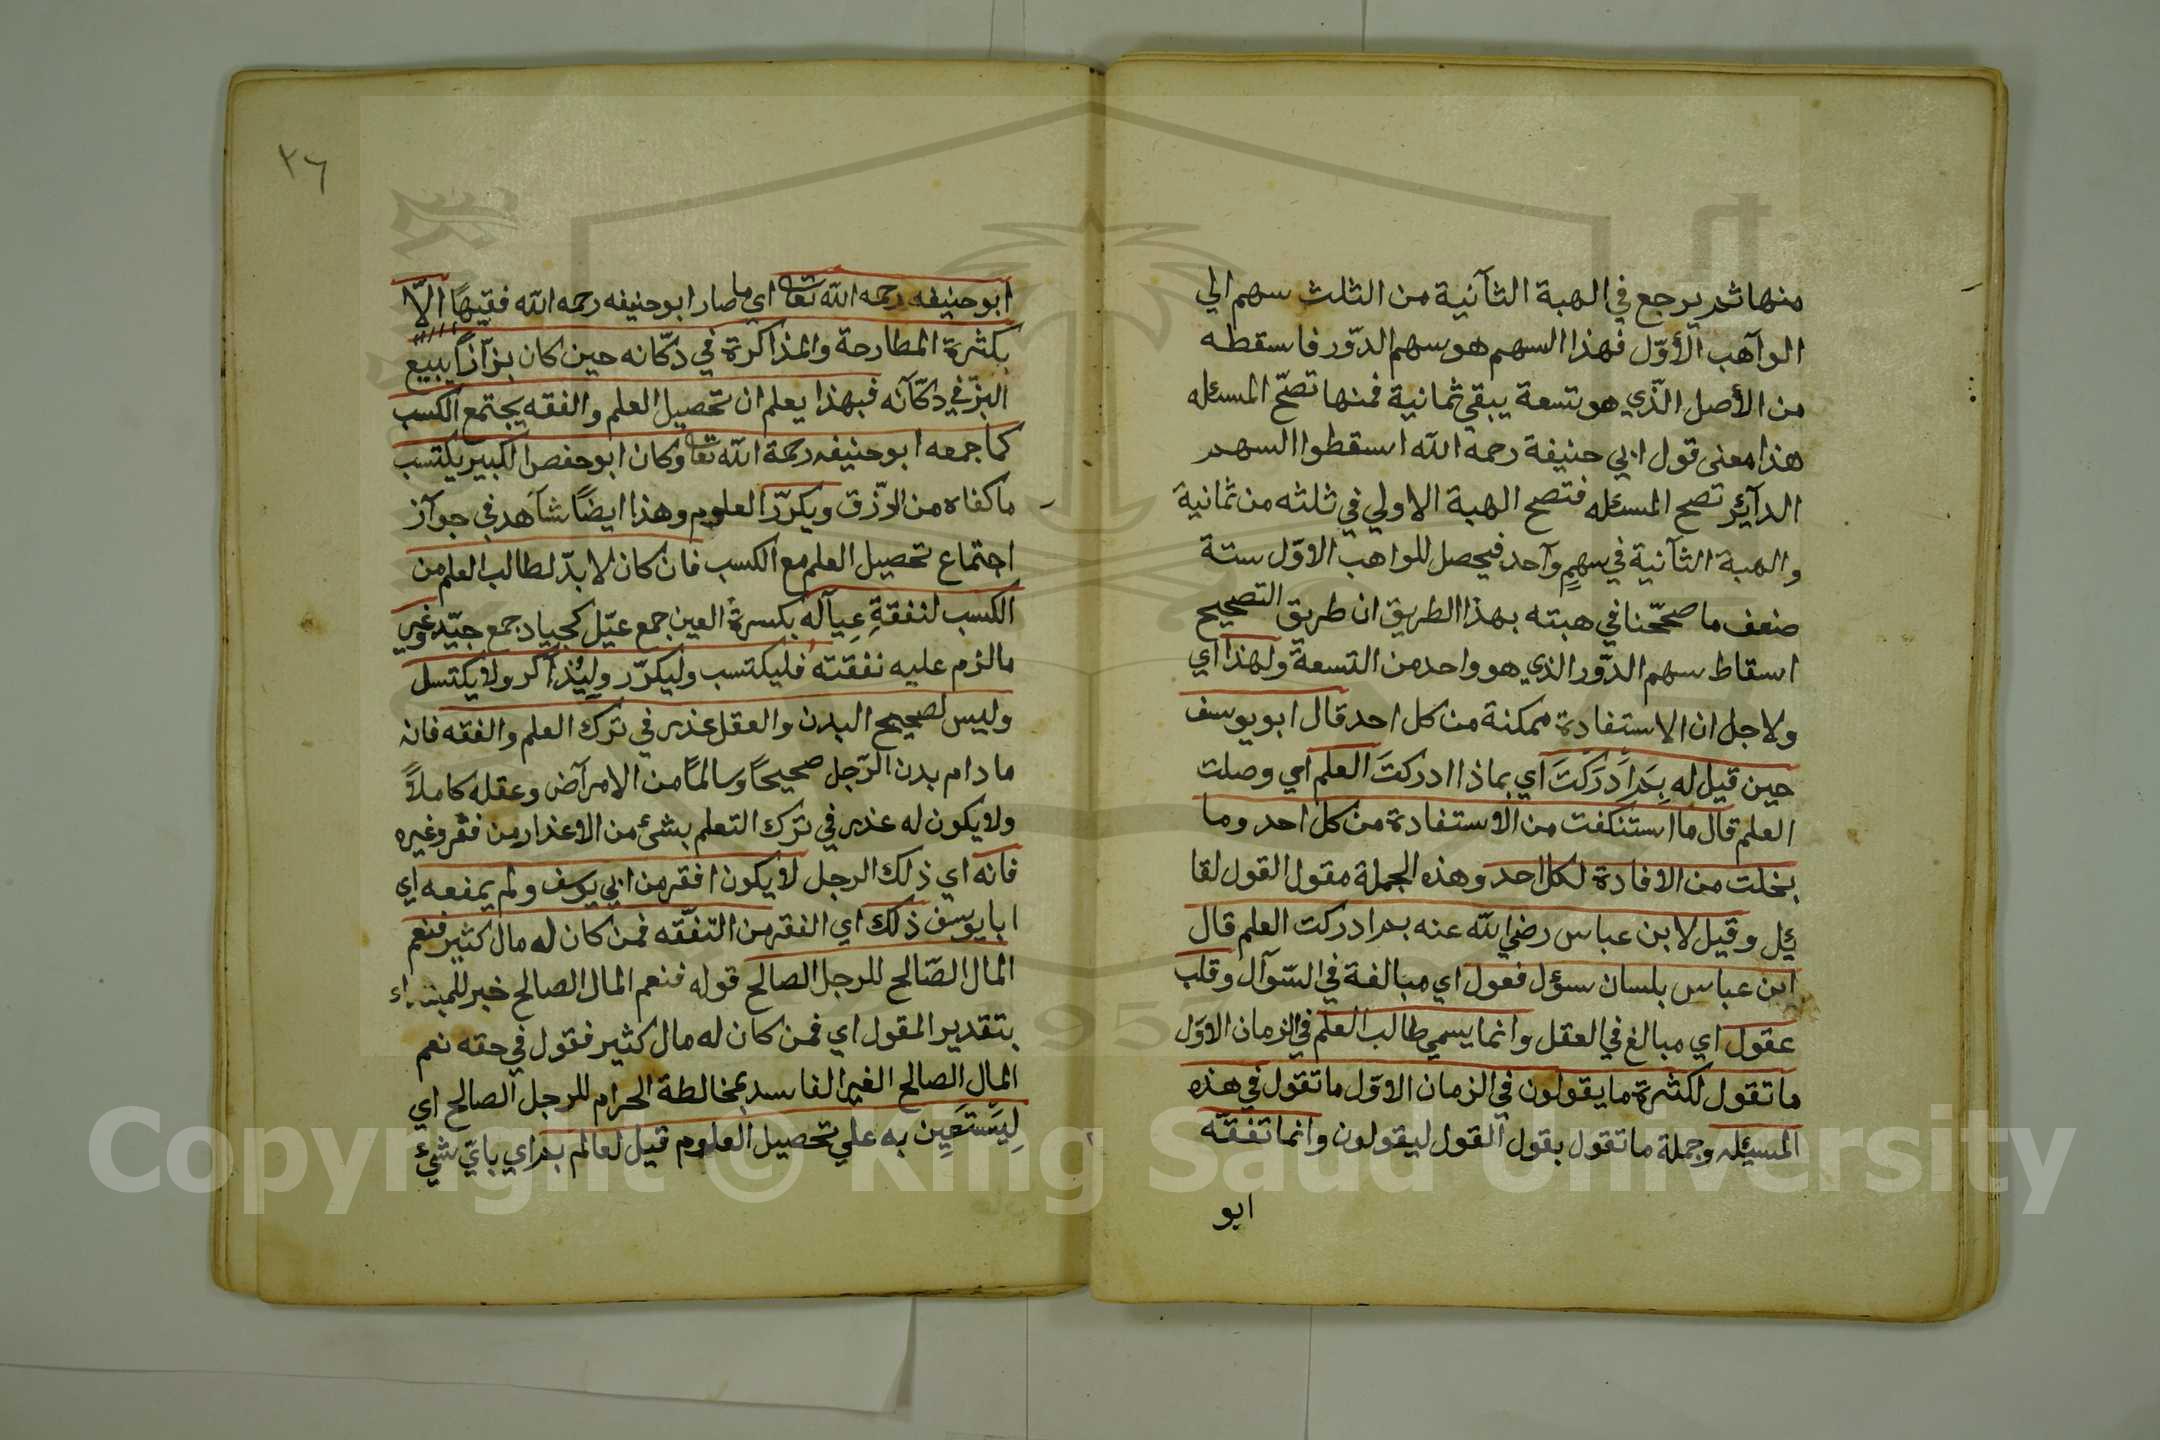 منها ثم يرجع في الهبة الثآنية من الثلث سهم الي
الوآهب الأوّل فهذا السهم هو سهم الدّور فاسقطه
من الأصل الّذي هو تسعة يبقي ثمانية فمنها تصحّ المسئله
هذا معنى قول ابي حنيفة رحمه الله اسقطوا السهم
الدآئر تصح المسئله فتصح الهبة الاولي في ثلثه من ثمانية
والهبة الثآنية في سهمٍ وآحد فيحصل للواهب الاوّل ستة
ضعف ما صحّحنا في هبته بهذا الطريق ان طريق التصحيح
اسقاط سهم الدّور الذي هو واحد من التسعة ولهذا اي
ولاجل ان الاستفادة ممكنة من كل احد قال ابو يوسف
حين قيل له بِمَ اَدرَكتَ اي بماذا ادركتَ العلم اي وصلت
العلم قال ما استنكفت من الاستفادة من كل احد وما
بخلت من الافادة لكل احد وهذه الجملة مقول القول لقا
ئل وقيل لابن عباس رضي الله عنه بم ادركت العلم قال
ابن عباس بلسان سؤل فعول اي مبالغة في السّوآل وقلب
عقول اي مبالغ في العقل وانما يسمي طالب العلم في الزمان الاوّل
ما تقول لكثرة ما يقولون في الزمان الاوّل ما تقول في هذه
المسئله وجملة ما تقول بقول القول ليقولون وانما تفقّه
ابو
٢٦
ابو حنيفه رحمه الله تعالى اي ما صار ابو حنيفه رحمه الله فقيهًا الّا
بكثرة المطارحة والمذاكرة في دكّانه حين كان بزآزًا يبيع
البزّ في دكّآنه فبهذا يعلم ان تحصيل العلم والفقه يجتمع الكسب
كما جمعه ابو حنيفه رحمة الله تعالى وكان ابو حفص الكبير يكتسب
ما كفاه من الرّزق ويكرّر العلوم وهذا ايضًا شآهد في جوآز
اجتماع تحصيل العلم مع الكسب فان كان لا بدّ لطالب العلم من
الكسب لنفقةِ عِيآله بكسرة العين جمع عيّل كجياد جمع جيّد وغير
ما لزم عليه نفقته فليكتسب وليكرّر وليذآكر ولا يكتسل
وليس لصحيح البدن والعقل عذر في ترك العلم والفقه فانه
ما دام بدن الرّجل صحيحًا وسالمًا من الامرآض وعقله كاملاً
ولا يكون له عذر في ترك التعلم بشئ من الاعذار من فقر وغيره
فانه اي ذلك الرجل لا يكون افقر من ابي يوسف ولم يمنعه اي
ابا يوسف ذلك اي الفقر من التفقّه فمن كان له مال كثير فنعم
المال الصّالح للرجل الصالح قوله فنعم المال الصالح خبر للمبتداء
بتقدير المقول اي فمن كان له مال كثير فقول في حقه نعم
المال الصالح الغير الفاسد بمخالطة الحرام للرجل الصالح اي
لِيَستَعِين به علي تحصيل العلوم قيل لعالم بم اي بايّ شئ
Copyright © King Saud University